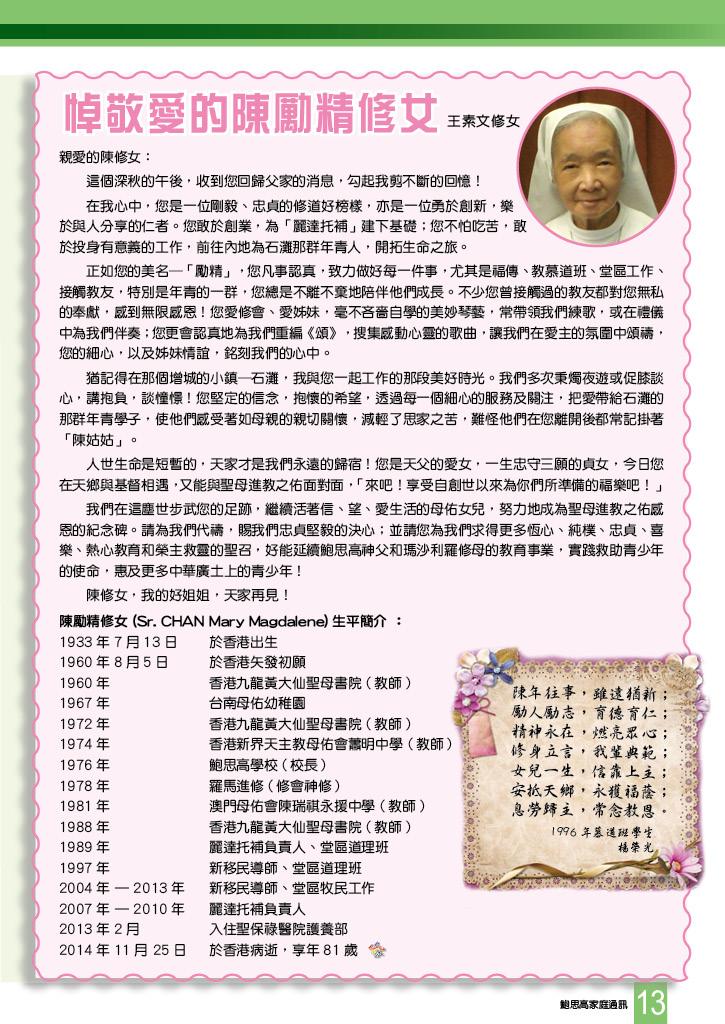 悼敬愛的陳勵精修女 王素文修女
親愛的陳修女：
這個深秋的午後，收到您回歸父家的消息，勾起我剪不斷的回憶！
在我心中，您是一位剛毅、忠貞的修道好榜樣，亦是一位勇於創新，樂
於與人分享的仁者。您敢於創業，為「麗達托補」建下基礎；您不怕吃苦，敢
於投身有意義的工作，前往內地為石灘那群年青人，開拓生命之旅。
正如您的美名─「勵精」，您凡事認真，致力做好每一件事，尤其是福傳、教慕道班、堂區工作、
接觸教友，特別是年青的一群，您總是不離不棄地陪伴他們成長。不少您曾接觸過的教友都對您無私
的奉獻，感到無限感恩！您愛修會、愛姊妹，毫不吝嗇自學的美妙琴藝，常帶領我們練歌，或在禮儀
中為我們伴奏；您更會認真地為我們重編《頌》，搜集感動心靈的歌曲，讓我們在愛主的氛圍中頌禱，
您的細心，以及姊妹情誼，銘刻我們的心中。
猶記得在那個增城的小鎮─石灘，我與您一起工作的那段美好時光。我們多次秉燭夜遊或促膝談
心，講抱負，談憧憬！您堅定的信念，抱懷的希望，透過每一個細心的服務及關注，把愛帶給石灘的
那群年青學子，使他們感受著如母親的親切關懷，減輕了思家之苦，難怪他們在您離開後都常記掛著
「陳姑姑」。
人世生命是短暫的，天家才是我們永遠的歸宿！您是天父的愛女，一生忠守三願的貞女，今日您
在天鄉與基督相遇，又能與聖母進教之佑面對面，「來吧！享受自創世以來為你們所準備的福樂吧！」
我們在這塵世步武您的足跡，繼續活著信、望、愛生活的母佑女兒，努力地成為聖母進教之佑感
恩的紀念碑。請為我們代禱，賜我們忠貞堅毅的決心；並請您為我們求得更多恆心、純樸、忠貞、喜
樂、熱心教育和榮主救靈的聖召，好能延續鮑思高神父和瑪沙利羅修母的教育事業，實踐救助青少年
的使命，惠及更多中華廣土上的青少年！
陳修女，我的好姐姐，天家再見！
陳勵精修女 (Sr. CHAN Mary Magdalene) 生平簡介：
1933 年 7 月 13 日 於香港出生
1960 年 8 月 5 日 於香港矢發初願
1960 年 香港九龍黃大仙聖母書院（教師）
1967 年 台南母佑幼稚園
1972 年 香港九龍黃大仙聖母書院（教師）
1974 年 香港新界天主教母佑會蕭明中學（教師）
1976 年 鮑思高學校（校長）
1978 年 羅馬進修（修會神修）
1981 年 澳門母佑會陳瑞祺永援中學（教師）
1988 年 香港九龍黃大仙聖母書院（教師）
1989 年 麗達托補負責人、堂區道理班
1997 年 新移民導師、堂區道理班
2004 年 — 2013 年 新移民導師、堂區牧民工作
2007 年 — 2010 年 麗達托補負責人
2013 年 2 月 入住聖保祿醫院護養部
2014 年 11 月 25 日 於香港病逝，享年 81 歲
陳年往事，雖遠猶新；
勵人勵志，育德育仁；
精神永在，燃亮眾心；
修身立言，我輩典範；
女兒一生，信靠上主；
安抵天鄉，永獲福蔭；
息勞歸主，常念教恩。
1996 年慕道班學生
楊榮光
鮑思高家庭通訊 13